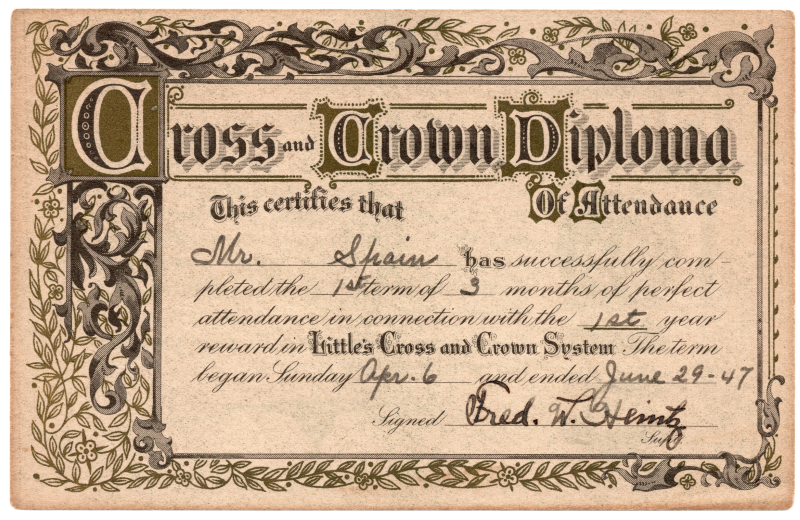 Cross and Crown Diploma
This certifies that Of Attendance
Mr. Spain has successfully com-
pleted the 1st term of 3 months of perfect
attendance in connection with the 1st year
reward in Little's Cross and Crown System The term
began Sunday Apr. 6 and ended June 29-47
Signed Fred. W. Heintz
Supt